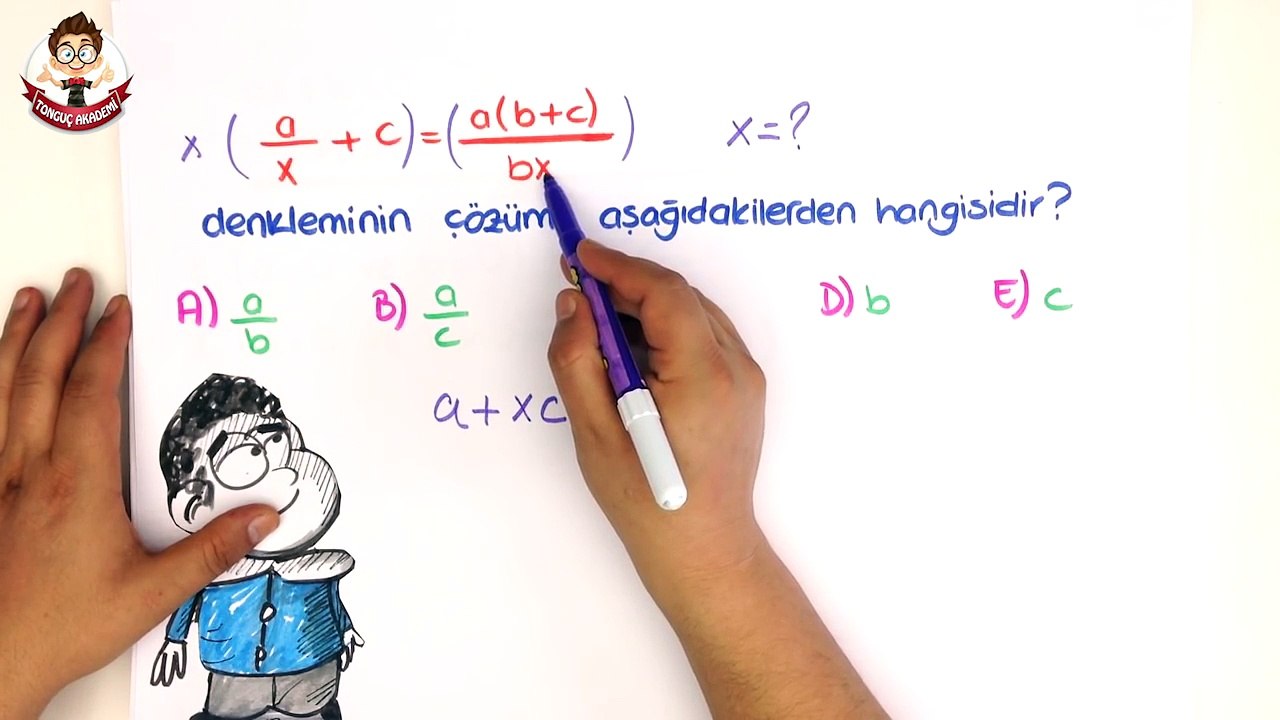 TONGUÇ AKADEMİ
x ( a/x + c ) = ( a(b+c)/bx ) x=?
denkleminin çözüm aşağıdakilerden hangisidir?
A) a/b B) a/c D) b E) c
a + xc